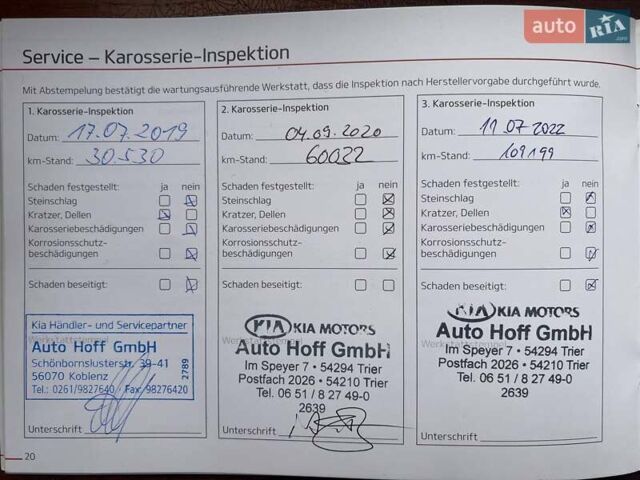 auto RIA.com
Service – Karosserie-Inspektion
Mit Abstempelung bestätigt die wartungsausführende Werkstatt, dass die Inspektion nach Herstellervorgabe durchgeführt wurde.
1. Karosserie-Inspektion
Datum: 17.07.2019
km-Stand: 30.530
Schaden festgestellt: ja nein
Steinschlag
Kratzer, Dellen
Karosseriebeschädigungen
Korrosionsschutz-
beschädigungen
Schaden beseitigt:
Kia Händler- und Servicepartner
Auto Hoff GmbH
Schönbornslusterstr. 39-41
56070 Koblenz
Tel.: 0261/9827640 · Fax 98276420
2789
Werkstattstempel
Unterschrift
2. Karosserie-Inspektion
Datum: 04.09.2020
km-Stand: 60022
Schaden festgestellt: ja nein
Steinschlag
Kratzer, Dellen
Karosseriebeschädigungen
Korrosionsschutz-
beschädigungen
Schaden beseitigt:
KIA KIA MOTORS
Werkstattstempel
Auto Hoff GmbH
Im Speyer 7 · 54294 Trier
Postfach 2026 · 54210 Trier
Tel. 06 51 / 8 27 49-0
2639
Unterschrift
3. Karosserie-Inspektion
Datum: 11.07.2022
km-Stand: 109199
Schaden festgestellt: ja nein
Steinschlag
Kratzer, Dellen
Karosseriebeschädigungen
Korrosionsschutz-
beschädigungen
Schaden beseitigt:
KIA KIA MOTORS
Auto Hoff GmbH
Werkstattstempel
Im Speyer 7 · 54294 Trier
Postfach 2026 · 54210 Trier
Tel. 06 51 / 8 27 49-0
2639
Unterschrift
20